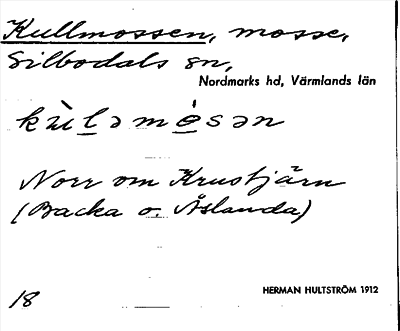 Kullmossen, mosse,
Silbodals sn,
Nordmarks hd, Värmlands län
kùḷəmósən
Norr om Krustjärn
(Backa o. Åslanda)
18
HERMAN HULTSTRÖM 1912